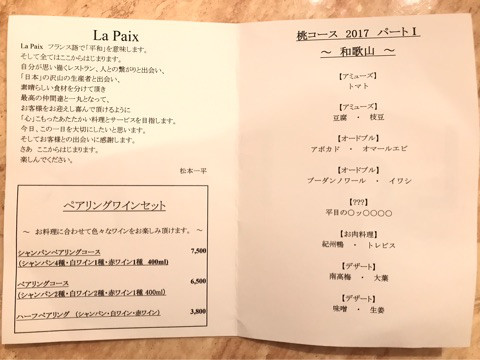 La Paix
La Paix フランス語で「平和」を意味します。
そして全てはここからはじまります。
自分が思い描くレストラン、人との繋がりと出会い。
「日本」の沢山の生産者と出会い、
素晴らしい食材を分けて頂き
最高の仲間達と一丸となって、
お客様をお迎えし喜んで頂けるように
「心」こもったあたたかい料理とサービスを目指します。
今日、この一日を大切にしたいと思います。
そしてお客様との出会いに感謝します。
さあ ここからはじまります。
楽しんでください。
松本一平
ペアリングワインセット
～ お料理に合わせて色々なワインをお楽しみ頂けます。 ～
シャンパンペアリングコース 7,500
(シャンパン4種・白ワイン1種・赤ワイン1種 400ml)
ペアリングコース 6,500
(シャンパン2種・白ワイン2種・赤ワイン1種 400ml)
ハーフペアリング (シャンパン・白ワイン・赤ワイン) 3,800
桃コース 2017 パートⅠ
～ 和歌山 ～
【アミューズ】
トマト
【アミューズ】
豆腐 ・ 枝豆
【オードブル】
アボカド ・ オマールエビ
【オードブル】
ブーダンノワール ・ イワシ
【???】
平目の○ッ○○○○
【お肉料理】
紀州鴨 ・ トレビス
【デザート】
南高梅 ・ 大葉
【デザート】
味噌 ・ 生姜